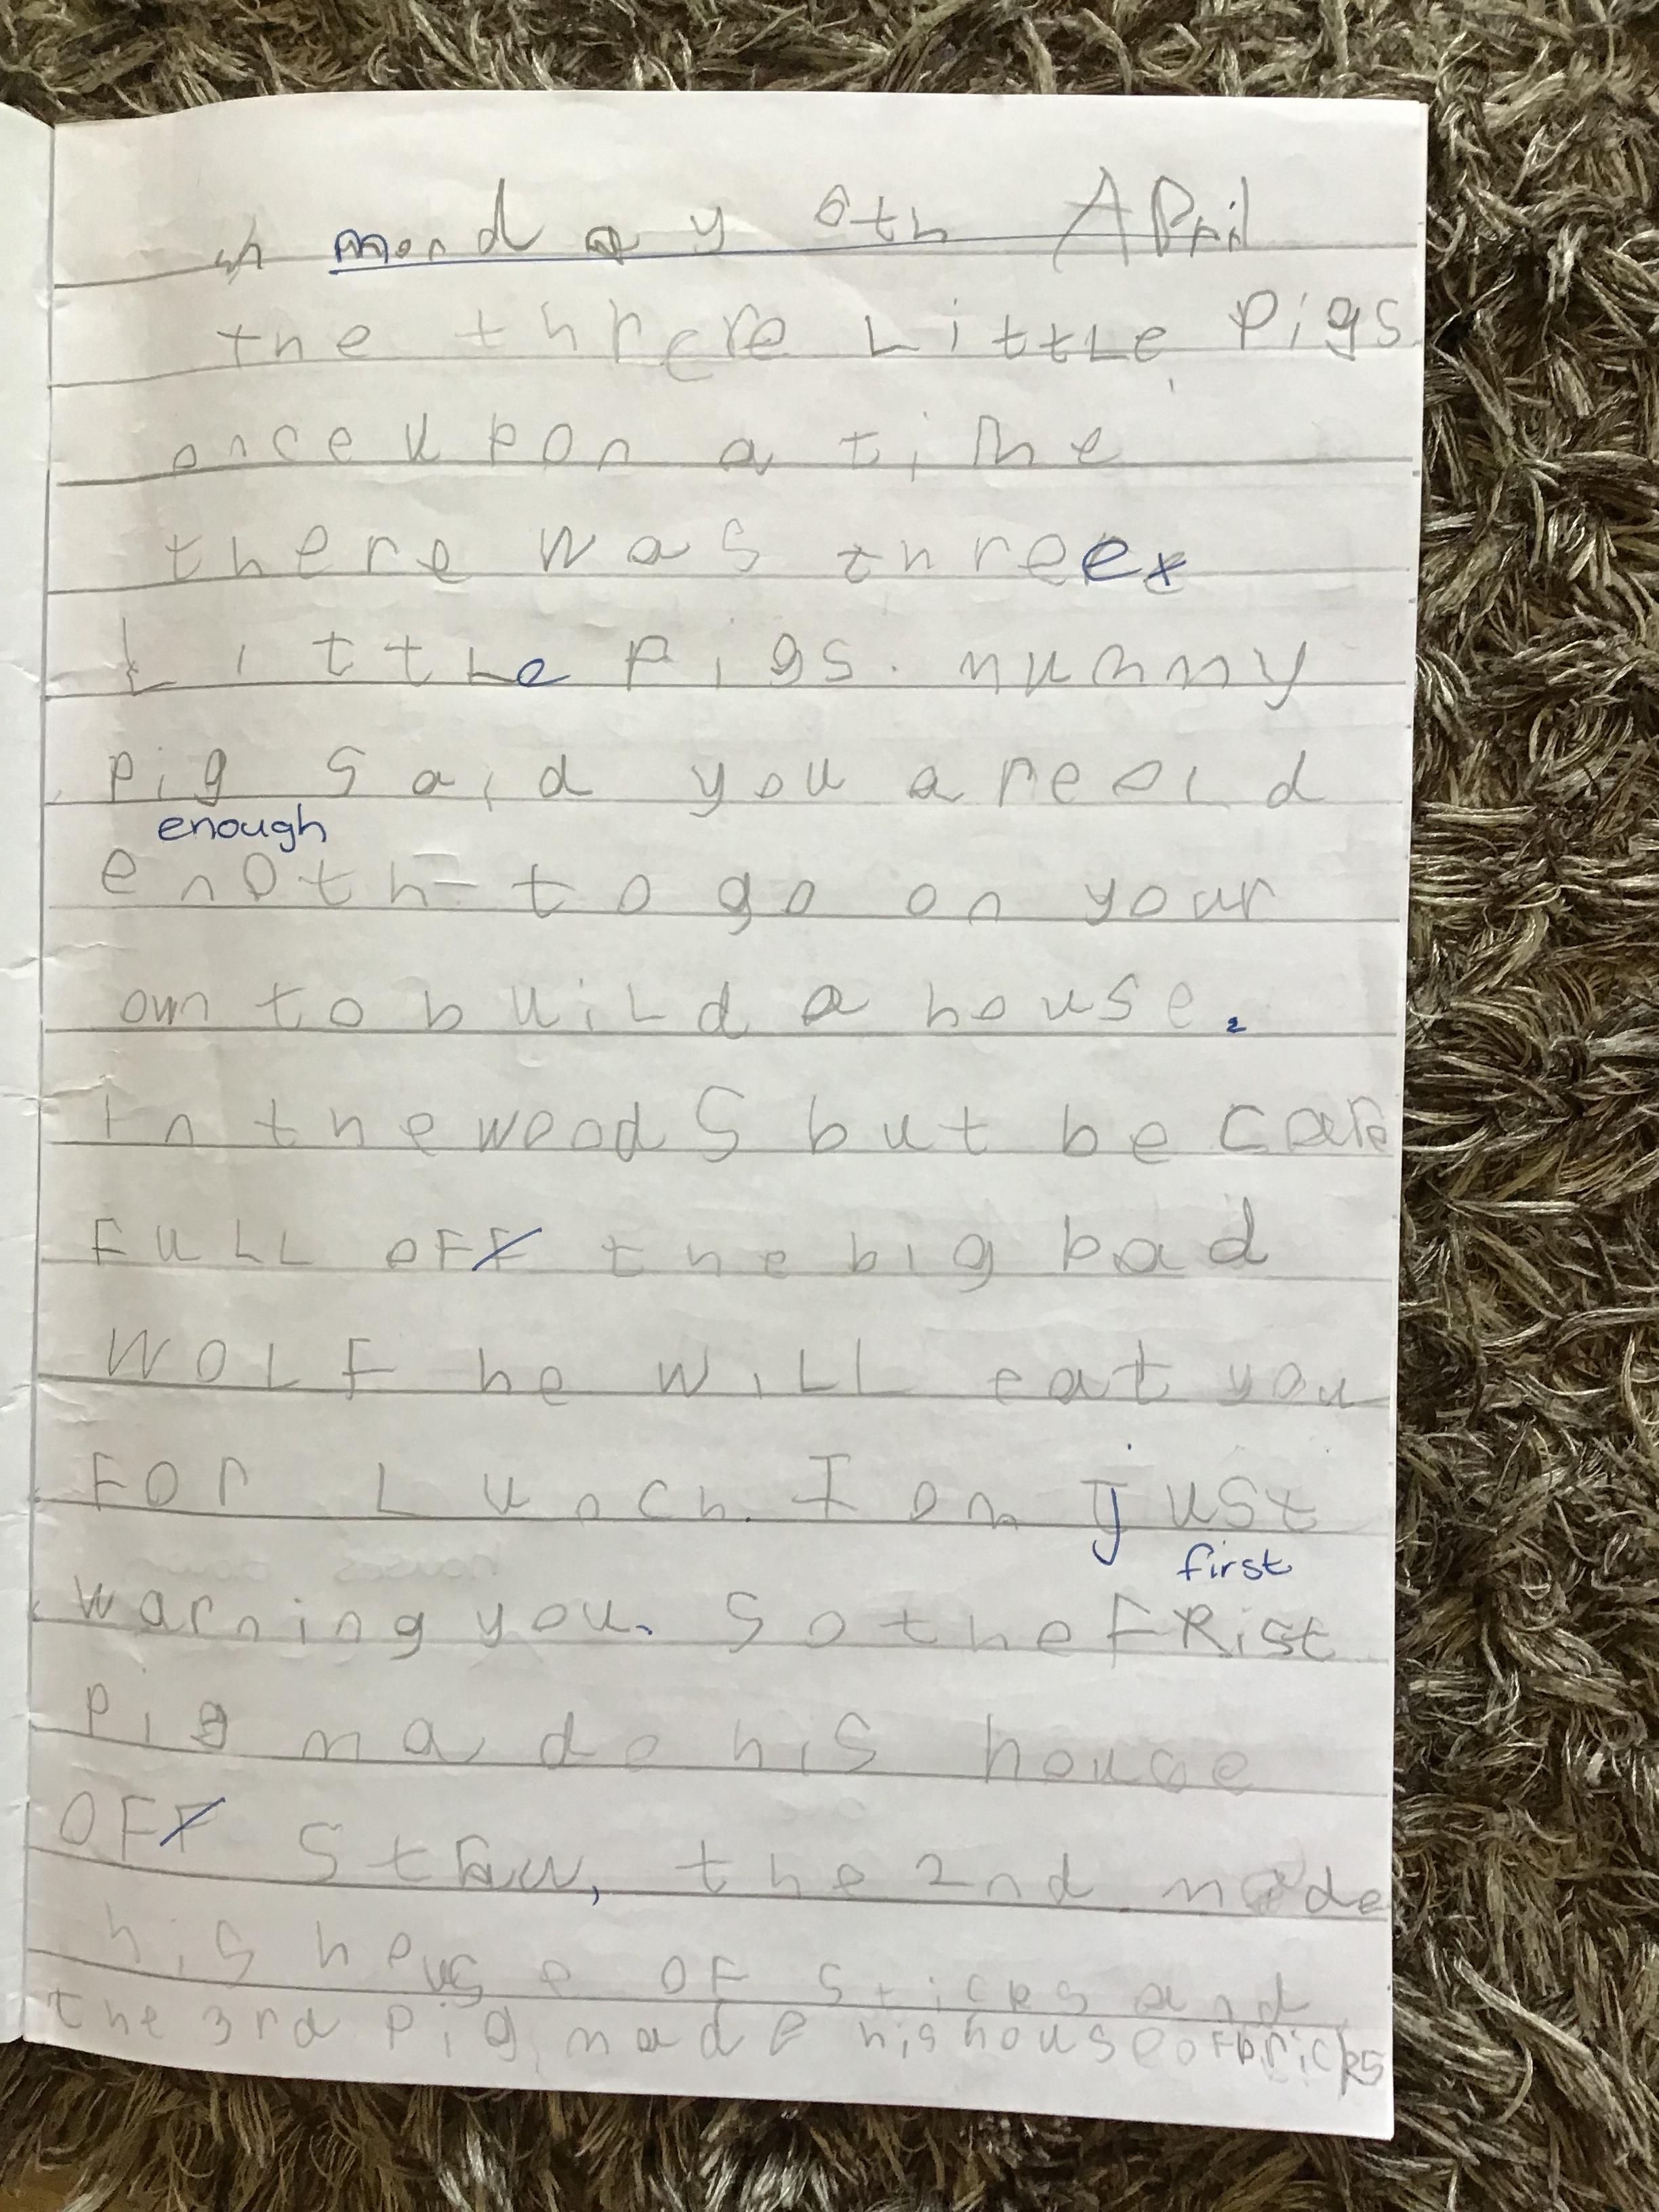 monday 6th April
the threre Little Pigs
once upon a time
there was three
Little Pigs. mummy
pig said you are old
enough
enoth to go on your
own to build a house.
In the woods but be care
FULL OFF the big bad
WOLF he will eat you
FOr Lunch. I am just
first
warning you. So the FRist
Pig made his house
OFF Straw, the 2nd made
his house OF sticks and
the 3rd Pig made his house oF bricks